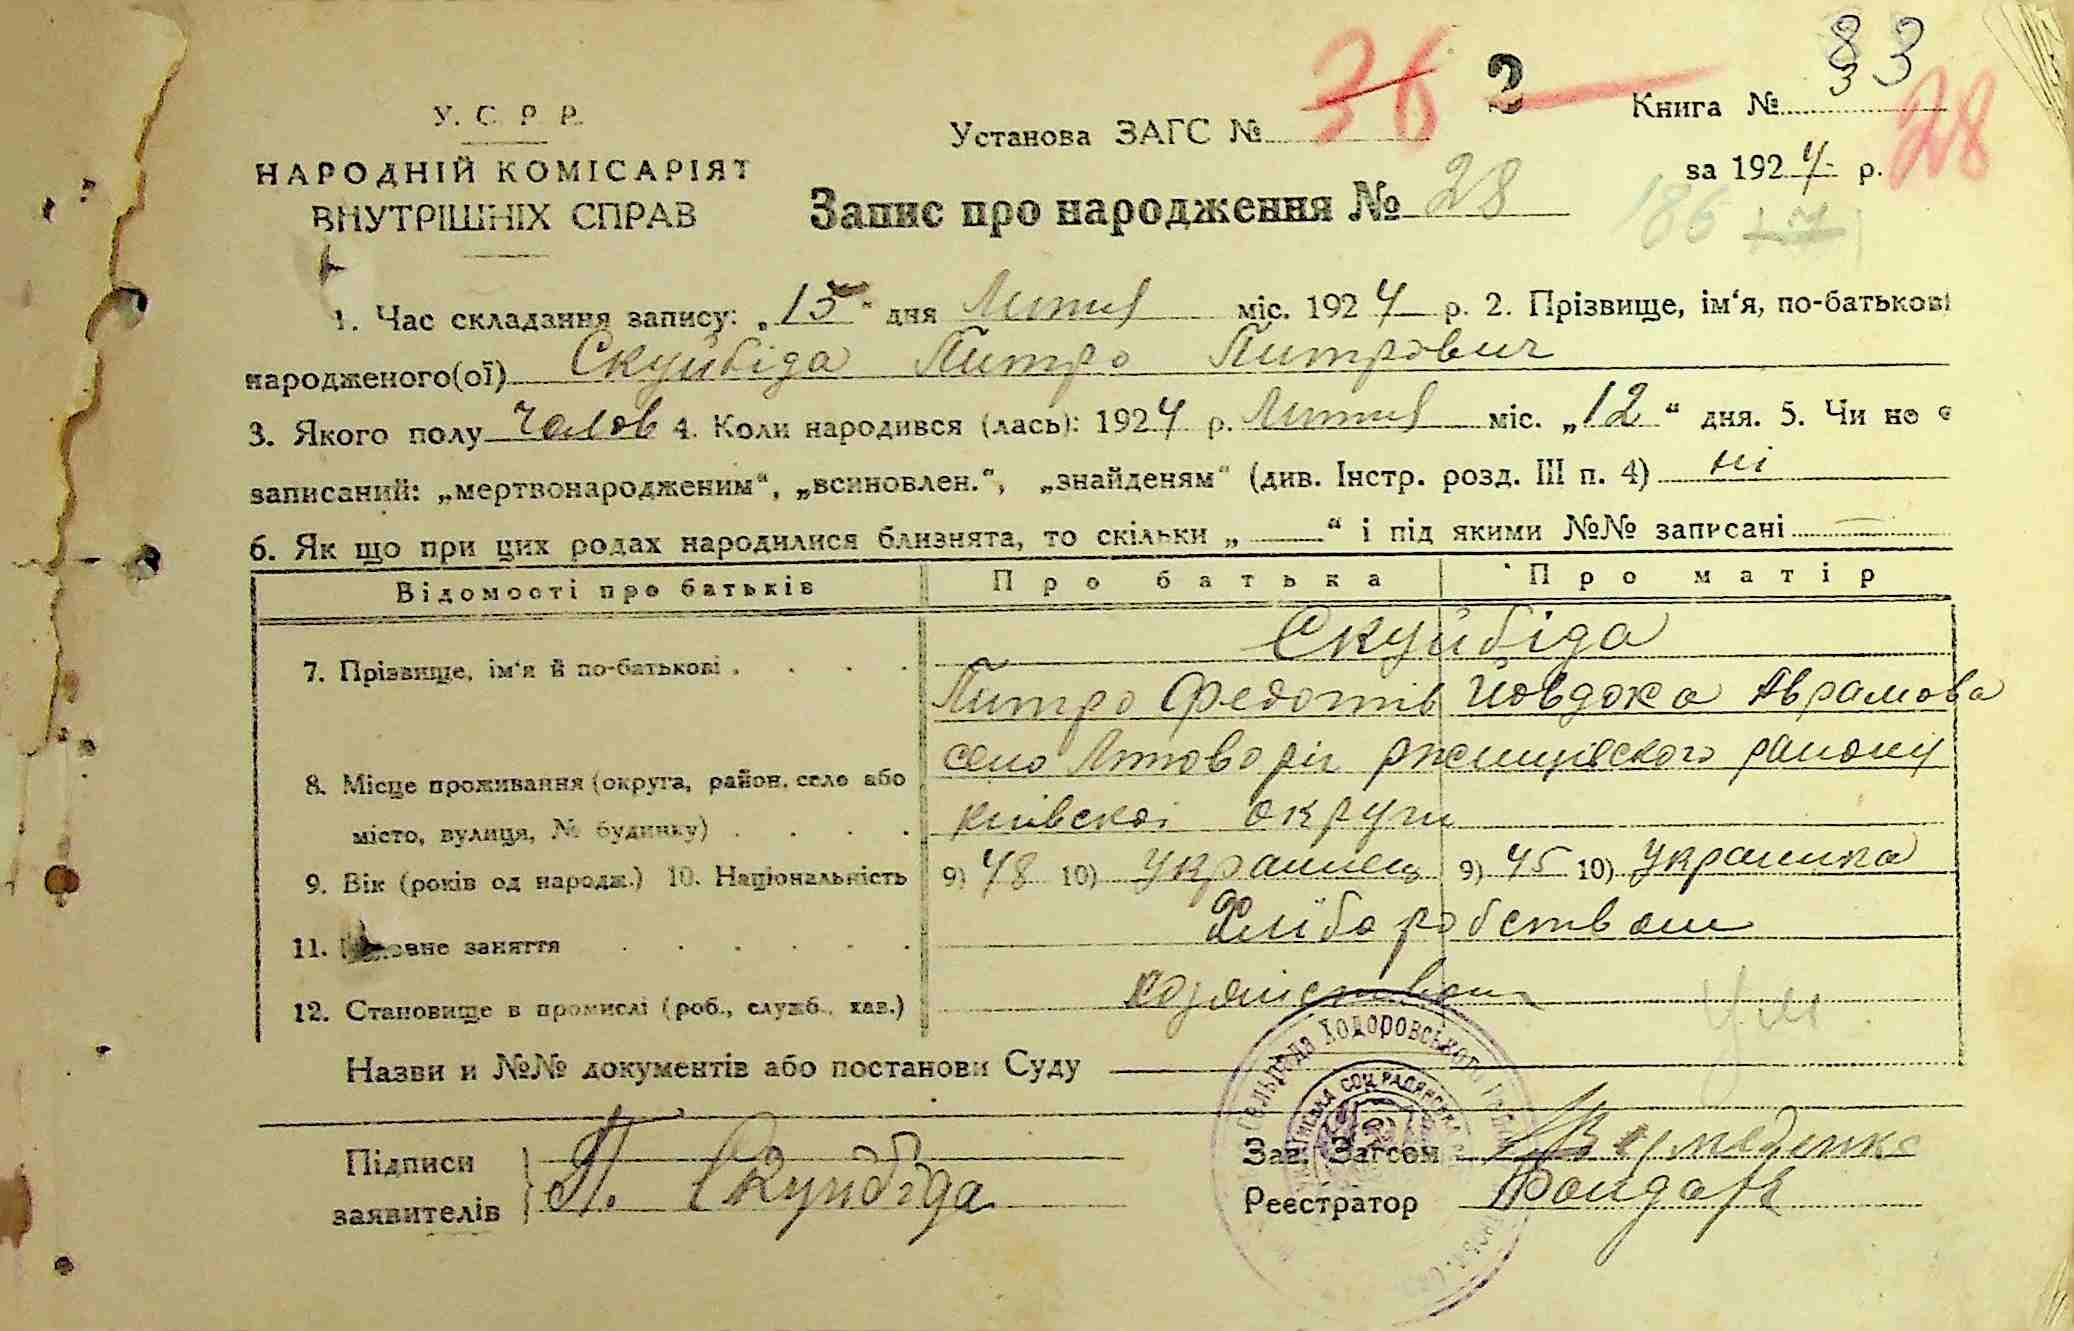 36 2 83
У. С. Р. Р. Установа ЗАГС № Книга № 28
НАРОДНІЙ КОМІСАРІЯТ за 1924 р.
ВНУТРІШНІХ СПРАВ Запис про народження № 28 186
1. Час складання запису: „15“ дня Липця міс. 1924 р. 2. Прізвище, ім‘я, по-батькові
народженого(ої) Скуйбіда Питро Питрович
3. Якого полу Чолов 4. Коли народився (лась): 1924 р. Липця міс. „12“ дня. 5. Чи не є
записаний: „мертвонародженим“, „всиновлен.“, „знайденям“ (див. Інстр. розд. III п. 4) ні
6. Як що при цих родах народилися близнята, то скільки „ “ і під якими №№ записані
Відомості про батьків Про батька Про матір
Скуйбіда
7. Прізвище, ім‘я й по-батькові . . . . Питро Федотів Йовдока Аврамова
8. Місце проживання (округа, район, село або село ржищівского району
місто, вулиця, № будинку) . . . . київскої округи
9. Вік (років од народж.) 10. Національність 9) 48 10) Українець 9) 45 10) Українка
11. заняття . . . . . Хлібо робством
12. Становище в промислі (роб., служб., хаз.)
Назви и №№ документів або постанови Суду
Підписи
заявителів П. Скуйбіда
Зав. Загсом
Реестратор Бондарь
Сельрада Ходоровського
СОЦ. РАДЯНСЬКА